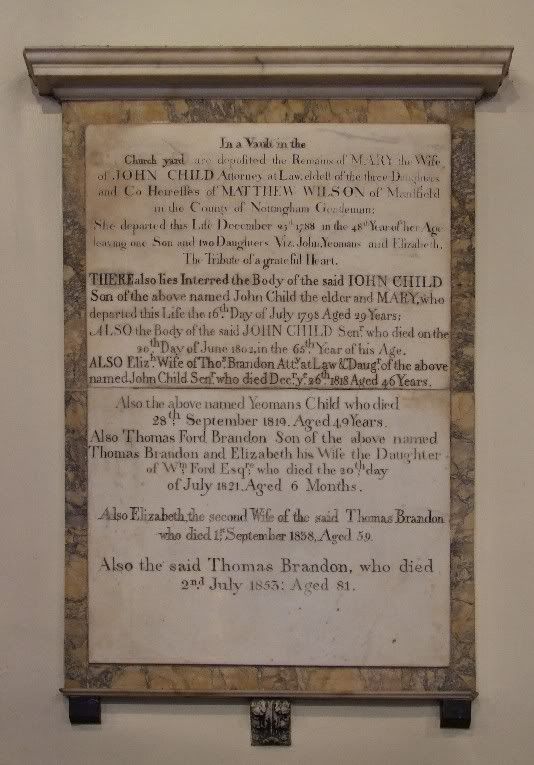 In a Vault in the
Church yard are deposited the Remains of MARY the Wife
of JOHN CHILD Attorney at Law, eldest of the three Daughters
and Co Heiresses of MATTHEW WILSON of
in the County of Nottingham Gentleman;
She departed this Life December 25th 1788 in the 48th Year of her Age
leaving one Son and two Daughters Viz. John, Yeomans and Elizabeth.
The Tribute of a grateful Heart.
THERE also lies Interred the Body of the said JOHN CHILD
Son of the above named John Child the elder and MARY, who
departed this Life the 16th Day of July 1798 Aged 29 Years;
ALSO the Body of the said JOHN CHILD Senr. who died on the
20th Day of June 1802, in the 65th Year of his Age.
ALSO Elizh. Wife of Thos. Brandon Atty. at Law & Daugr. of the above
named John Child Senr. who died Decr. ye. 26th. 1818 Aged 46 Years.
Also the above named Yeomans Child who died
28th. September 1819. Aged 49 Years.
Also Thomas Ford Brandon Son of the above named
Thomas Brandon and Elizabeth his Wife the Daughter
of Wm. Ford Esqre. who died the 20th day
of July 1821. Aged 6 Months.
Also Elizabeth, the second Wife of the said Thomas Brandon
who died 1st. September 1838, Aged 59.
Also the said Thomas Brandon, who died
2nd July 1853: Aged 81.